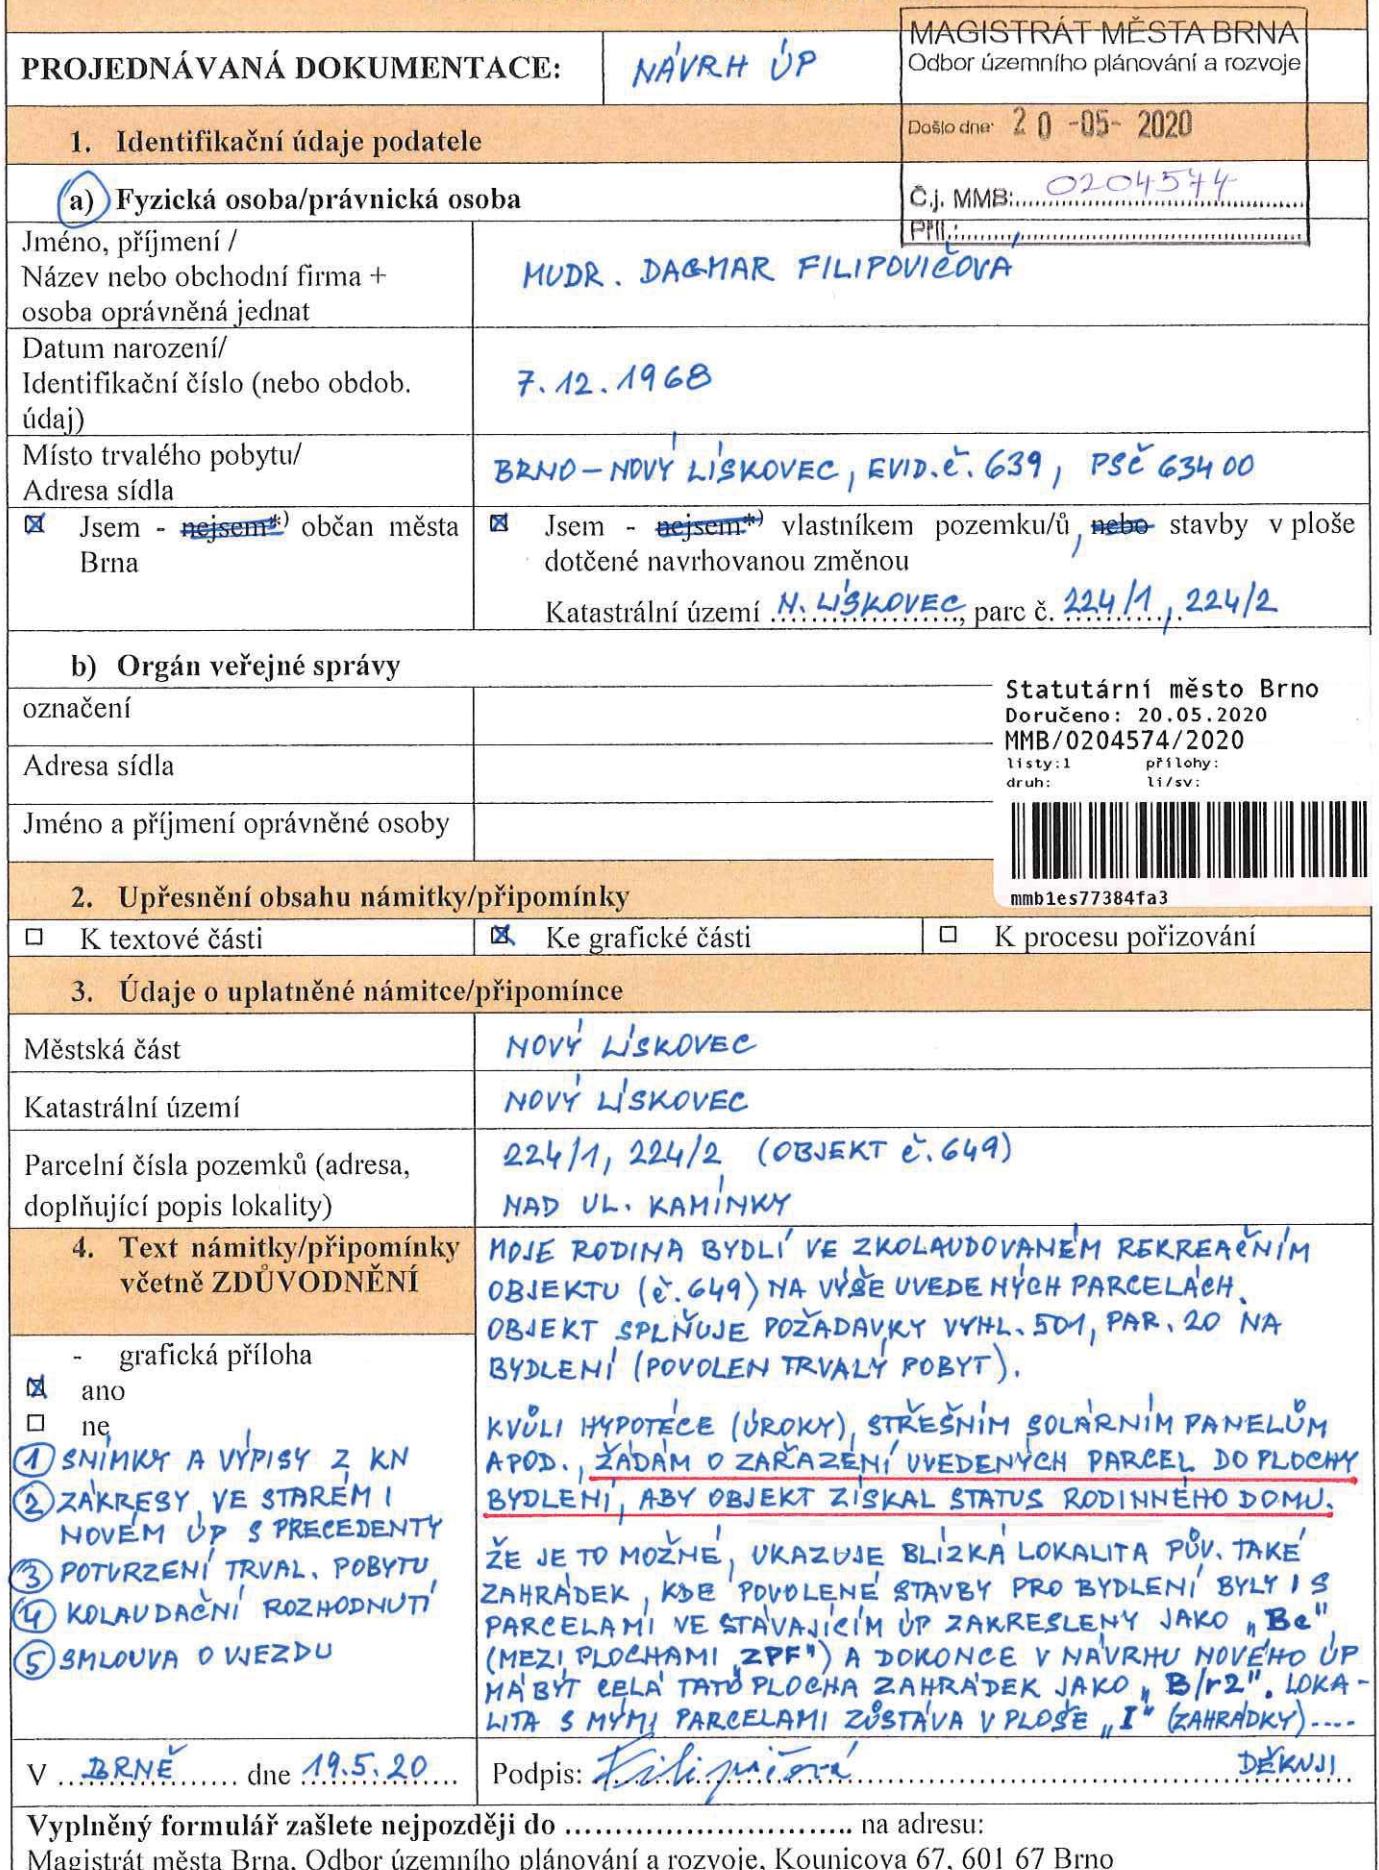 PROJEDNÁVANÁ DOKUMENTACE: NÁVRH ÚP
MAGISTRÁT MĚSTA BRNA
Odbor územního plánování a rozvoje
Došlo dne: 20 -05- 2020
Č.j. MMB: 0204574
Příl.:
1. Identifikační údaje podatele
a) Fyzická osoba/právnická osoba
Jméno, příjmení /
Název nebo obchodní firma +
osoba oprávněná jednat
MUDR. DAGMAR FILIPOVIČOVÁ
Datum narození/
Identifikační číslo (nebo obdob.
údaj)
7.12.1968
Místo trvalého pobytu/
Adresa sídla
BRNO - NOVÝ LÍSKOVEC, EVID.Č. 639, PSČ 634 00
☒ Jsem - nejsem*) občan města
Brna
☒ Jsem - nejsem*) vlastníkem pozemku/ů, nebo stavby v ploše
dotčené navrhovanou změnou
Katastrální území N. LÍSKOVEC, parc č. 224/1, 224/2
b) Orgán veřejné správy
označení
Adresa sídla
Jméno a příjmení oprávněné osoby
Statutární město Brno
Doručeno: 20.05.2020
MMB/0204574/2020
listy:1 přílohy:
druh: li/sv:
mmb1es77384fa3
2. Upřesnění obsahu námitky/připomínky
☐ K textové části ☒ Ke grafické části ☐ K procesu pořizování
3. Údaje o uplatněné námitce/připomínce
Městská část NOVÝ LÍSKOVEC
Katastrální území NOVÝ LÍSKOVEC
Parcelní čísla pozemků (adresa,
doplňující popis lokality)
224/1, 224/2 (OBJEKT Č. 649)
NAD UL. KAMÍNKY
4. Text námitky/připomínky
včetně ZDŮVODNĚNÍ
- grafická příloha
☒ ano
☐ ne
① SNÍMKY A VÝPISY Z KN
② ZÁKRESY VE STARÉM I
NOVÉM ÚP S PRECEDENTY
③ POTVRZENÍ TRVAL. POBYTU
④ KOLAUDAČNÍ ROZHODNUTÍ
⑤ SMLOUVA O VJEZDU
MOJE RODINA BYDLÍ VE ZKOLAUDOVANÉM REKREAČNÍM
OBJEKTU (Č. 649) NA VÝŠE UVEDENÝCH PARCELÁCH.
OBJEKT SPLŇUJE POŽADAVKY VYHL. 501, PAR. 20 NA
BYDLENÍ (POVOLEN TRVALÝ POBYT).
KVŮLI HYPOTÉCE (ÚROKY), STŘEŠNÍM SOLÁRNÍM PANELŮM
APOD., ŽÁDÁM O ZAŘAZENÍ UVEDENÝCH PARCEL DO PLOCHY
BYDLENÍ, ABY OBJEKT ZÍSKAL STATUS RODINNÉHO DOMU.
ŽE JE TO MOŽNÉ, UKAZUJE BLÍZKÁ LOKALITA PŮV. TAKÉ
ZAHRÁDEK, KDE POVOLENÉ STAVBY PRO BYDLENÍ BYLY I S
PARCELAMI VE STÁVAJÍCÍM ÚP ZAKRESLENY JAKO „Bc"
(MEZI PLOCHAMI „ZPF") A DOKONCE V NÁVRHU NOVÉHO ÚP
MÁ BÝT CELÁ TATO PLOCHA ZAHRÁDEK JAKO „B/r2". LOKA-
LITA S MÝMI PARCELAMI ZŮSTÁVÁ V PLOŠE „I" (ZAHRÁDKY)....
V BRNĚ dne 19.5.20 Podpis: Filipovičová DĚKUJI
Vyplněný formulář zašlete nejpozději do ............................ na adresu:
Magistrát města Brna, Odbor územního plánování a rozvoje, Kounicova 67, 601 67 Brno